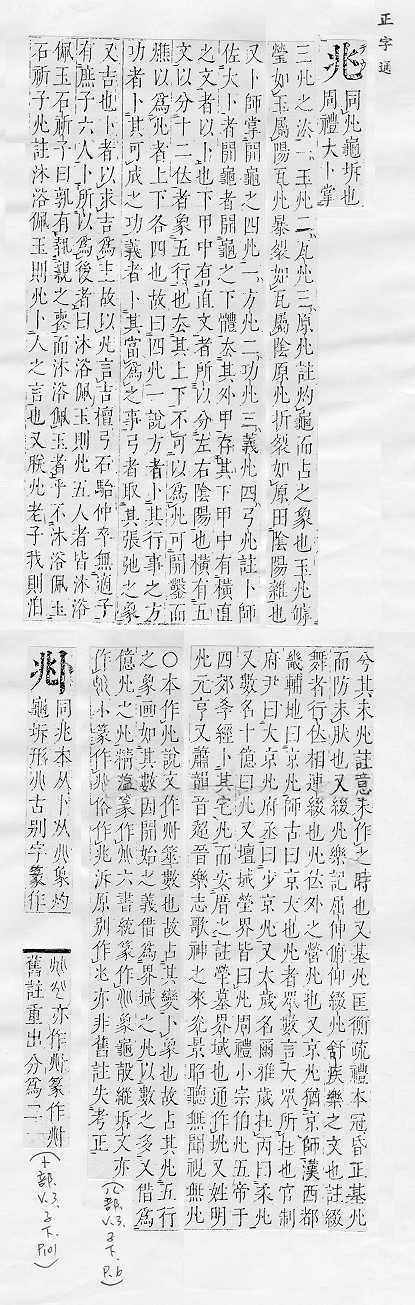 正字通
兆 同𠧞龜坼也
周禮大卜掌
三兆之法一玉兆二瓦兆三原兆註灼龜而占之象也玉兆罅
瑩如玉屬陽瓦兆暴裂如瓦屬陰原兆折裂如原田陰陽雜也
又卜師掌開龜之四兆一方兆二功兆三義兆四弓兆註卜師
佐大卜者開龜者開龜之下體去其外甲存其下甲中有橫直
之文者以卜也下甲中有直文者所以分左右陰陽也橫有五
文以分十二位者象五行也去其上下不可以爲兆可開鑿而
燋以爲兆者上下各四也故曰四兆一說方者卜其行事之方
功者卜其可成之功義者卜其當爲之事弓者取其張弛之象
又吉也卜者以求吉爲主故以兆言吉檀弓石駘仲卒無適子
有庶子六人卜所以爲後者曰沐浴佩玉則兆五人者皆沐浴
佩玉石祈子曰孰有執親之喪而沐浴佩玉者乎不沐浴佩玉
石祈子兆註沐浴佩玉則兆卜人之言也又朕兆老子我則泊
兮其未兆註意未作之時也又基兆匡衡疏禮本冠昏正基兆
而防未然也又綴兆樂記屈伸俯仰綴兆舒疾樂之文也註綴
舞者行位相連綴也兆位外之營兆也又京兆猶京師漢西都
畿輔地曰京兆師古曰京大也兆者眾數言大眾所在也官制
府尹曰大京兆府丞曰少京兆又太歲名爾雅歲在丙曰柔兆
又數名十億曰兆又壇域塋界皆曰兆周禮小宗伯兆五帝于
四郊孝經卜其宅兆而安厝之註塋墓界域也通作垗又姓明
兆元亨又蕭韻音超晉樂志歌神之來光景昭聽無聞視無兆
○本作兆說文作𠧞筮數也故占其變卜象也故占其兆五行
之象画如其數因開始之義借爲界域之兆以數之多又借爲
億兆之兆精蘊篆作 六書統篆作 象龜殼縱坼文亦
作 小篆作 俗作兆泝原别作 亦非舊註失考正
(八部.V.3.子下.P.6)
𠧞 同兆本从卜从兆象灼
龜坼形 古别字篆作
 亦作 篆作
舊註重出分爲二
(卜部.V.3.子下.P.101)